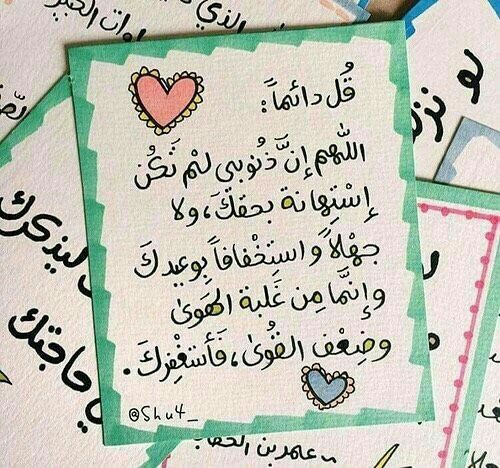 قُل دائماً :
اللهم إنَّ ذُنوبي لمْ تَكُن
إسْتِهانة بحقكَ، ولا
جهْلاً واستخْفافاً بوعيدكَ
وإنَّما مِن غَلبة الهَوىٰ
وضِعْف القُوىٰ، فَأستَغْفِركَ.
@Shu4_
الذي
لو نزء
ليذكرك
حاجتك
عامر بن